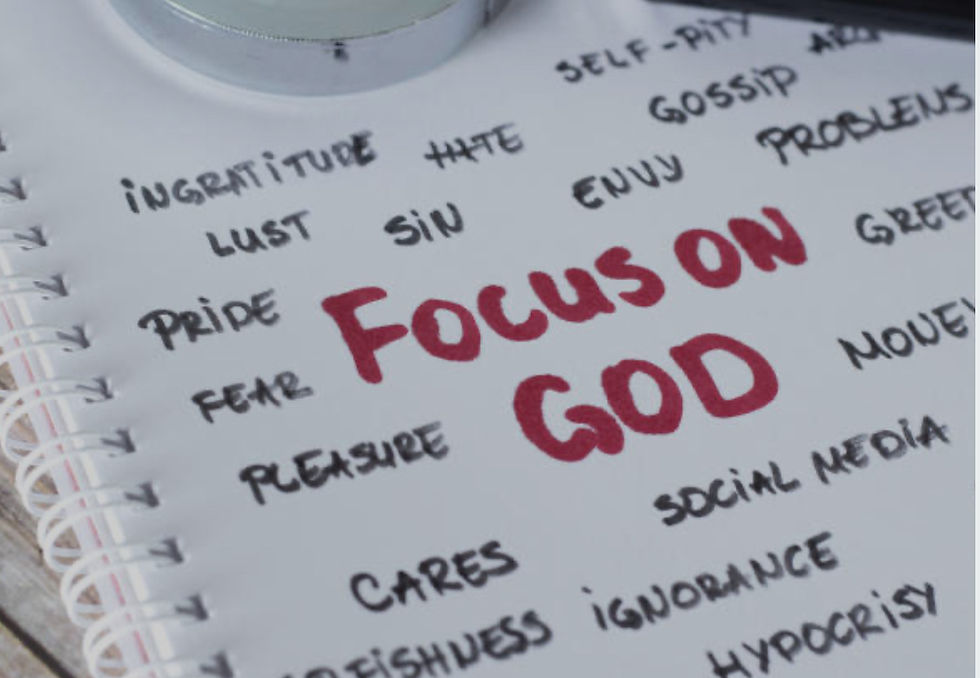 SELF-PITY
GOSSIP
INGRATITUDE HATE
PROBLEMS
LUST SIN ENVY
GREED
PRIDE FOCUS ON
FEAR GOD MONEY
PLEASURE
SOCIAL MEDIA
CARES
IGNORANCE
HYPOCRISY